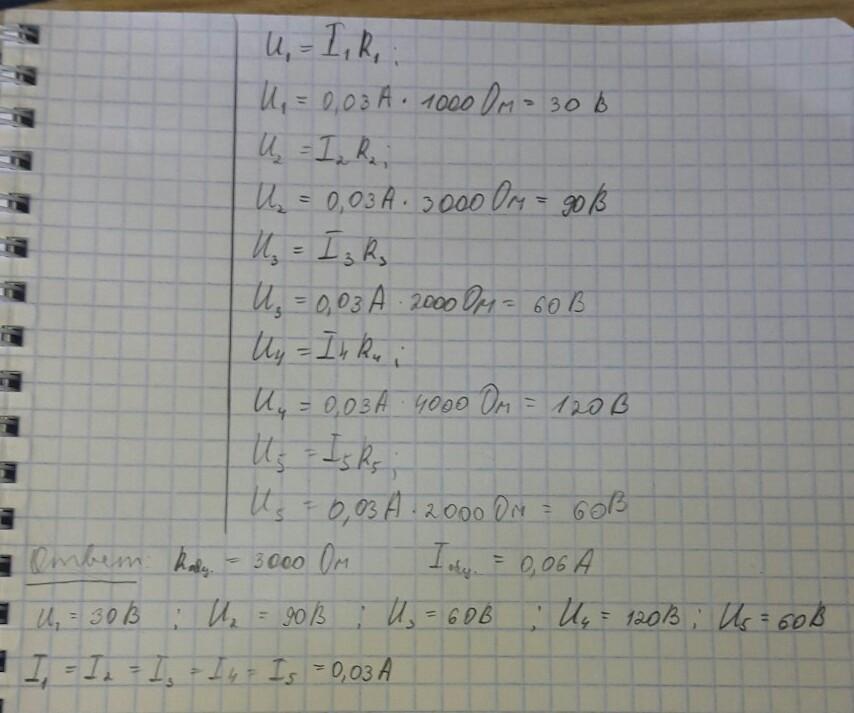 U₁ = I₁R₁;
U₁ = 0,03А · 1000 Ом = 30 В
U₂ = I₂R₂;
U₂ = 0,03А · 3000 Ом = 90 В
U₃ = I₃R₃
U₃ = 0,03А · 2000 Ом = 60 В
U₄ = I₄R₄;
U₄ = 0,03А · 4000 Ом = 120 В
U₅ = I₅R₅;
U₅ = 0,03А · 2000 Ом = 60 В
Ответ: Rобщ. = 3000 Ом Iобщ. = 0,06 А
U₁ = 30 В ; U₂ = 90 В ; U₃ = 60 В ; U₄ = 120 В ; U₅ = 60 В
I₁ = I₂ = I₃ = I₄ = I₅ = 0,03 А